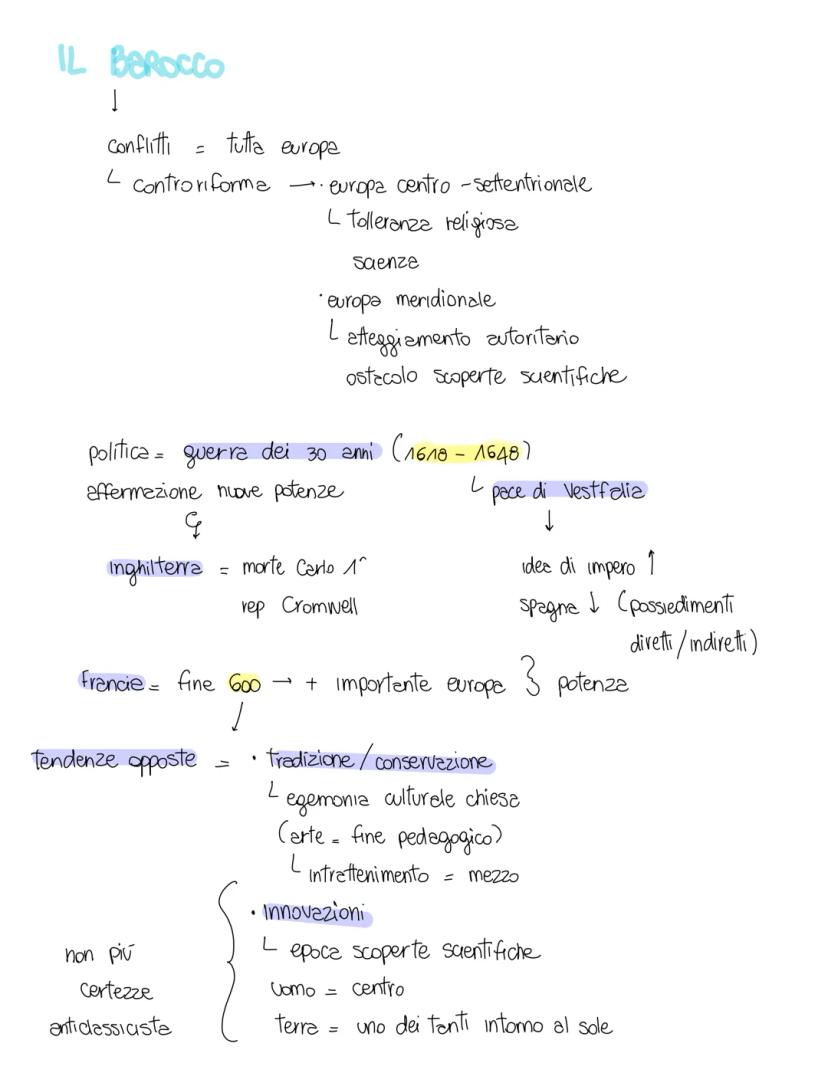 IL BAROCCO
↓
conflitti = tutta europa
└ controriforma → · europa centro - settentrionale
└ tolleranza religiosa
scienza
· europa meridionale
└ atteggiamento autoritario
ostacolo scoperte scientifiche
politica = guerra dei 30 anni (1618 - 1648)
affermazione nuove potenze └ pace di Vestfalia
↓
inghilterra = morte Carlo 1^ idea di impero ↑
rep Cromwell spagna ↓ (possiedimenti
diretti / indiretti)
francia = fine 600 → + importante europa } potenza
↓
tendenze opposte = · tradizione / conservazione
└ egemonia culturale chiesa
(arte = fine pedagogico)
└ intrattenimento = mezzo
· innovazioni
non più └ epoca scoperte scientifiche
certezze uomo = centro
anticlassicista terra = uno dei tanti intorno al sole